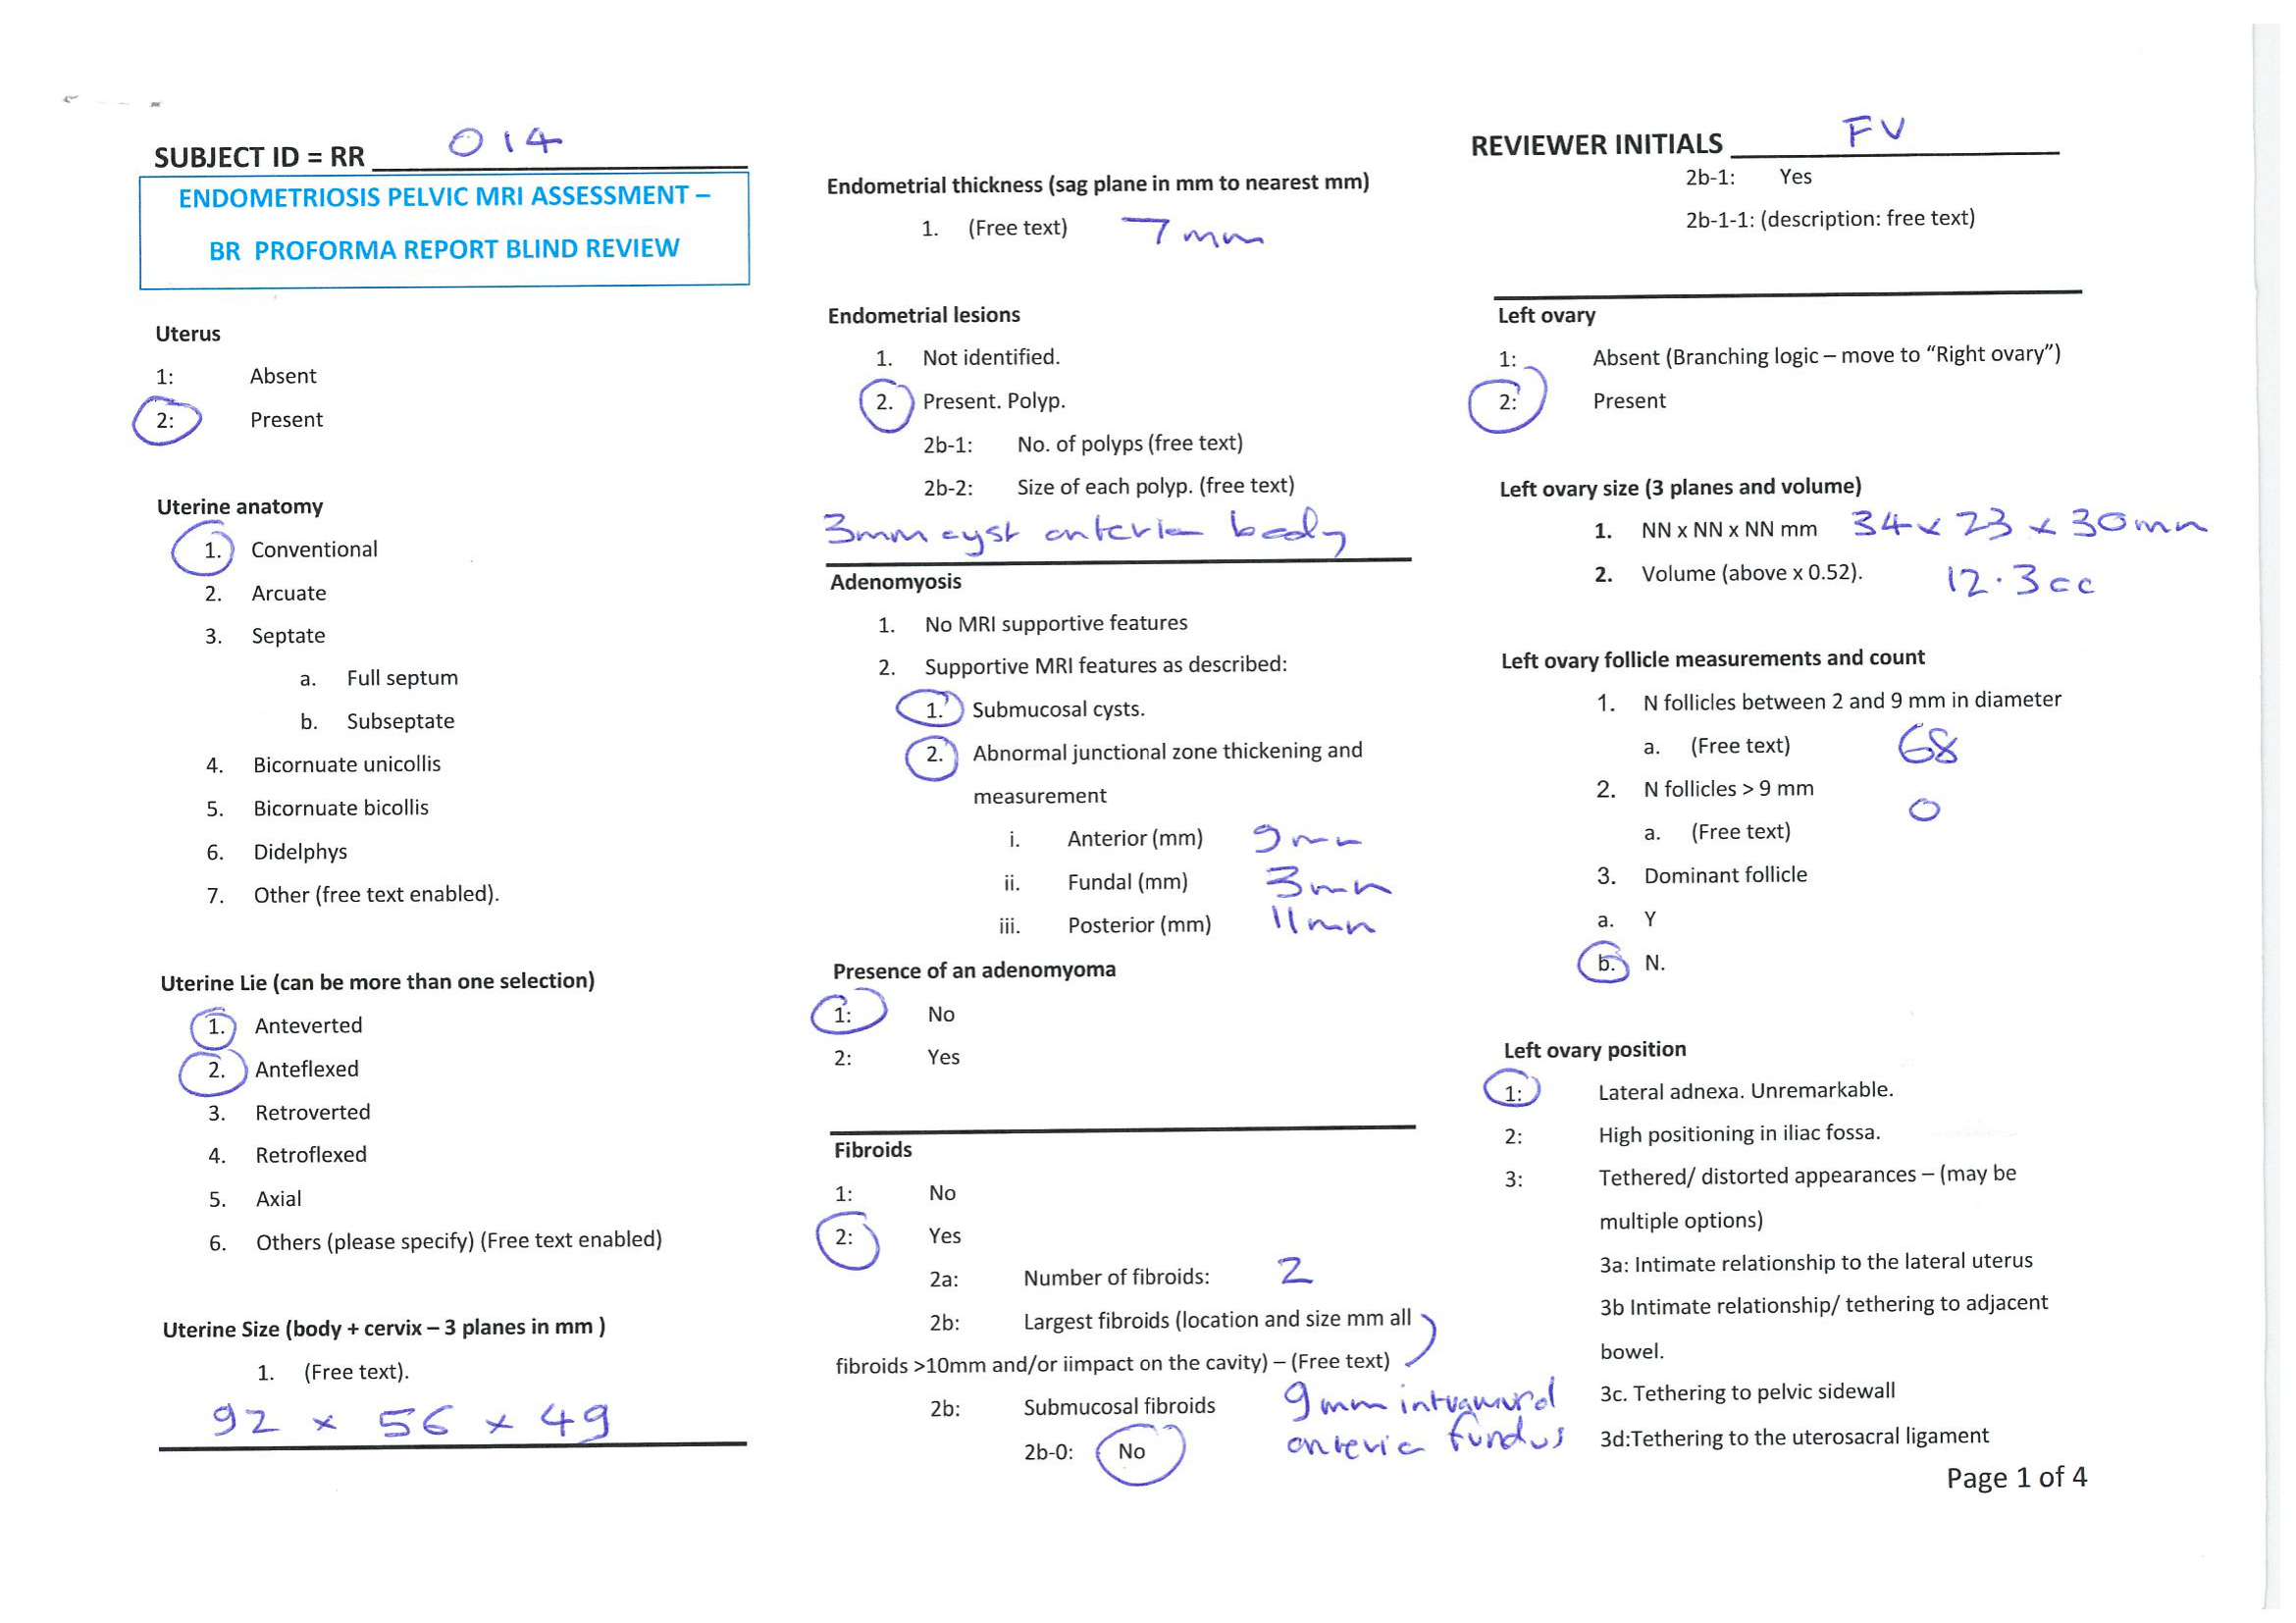 SUBJECT ID = RR 014
ENDOMETRIOSIS PELVIC MRI ASSESSMENT –
BR PROFORMA REPORT BLIND REVIEW
Uterus
1: Absent
2: Present
Uterine anatomy
1. Conventional
2. Arcuate
3. Septate
a. Full septum
b. Subseptate
4. Bicornuate unicollis
5. Bicornuate bicollis
6. Didelphys
7. Other (free text enabled).
Uterine Lie (can be more than one selection)
1. Anteverted
2. Anteflexed
3. Retroverted
4. Retroflexed
5. Axial
6. Others (please specify) (Free text enabled)
Uterine Size (body + cervix – 3 planes in mm )
1. (Free text).
92 x 56 x 49
Endometrial thickness (sag plane in mm to nearest mm)
1. (Free text) 7mm
Endometrial lesions
1. Not identified.
2. Present. Polyp.
2b-1: No. of polyps (free text)
2b-2: Size of each polyp. (free text)
3mm cyst anterior body
Adenomyosis
1. No MRI supportive features
2. Supportive MRI features as described:
1. Submucosal cysts.
2. Abnormal junctional zone thickening and
measurement
i. Anterior (mm) 9mm
ii. Fundal (mm) 3mm
iii. Posterior (mm) 11mm
Presence of an adenomyoma
1: No
2: Yes
Fibroids
1: No
2: Yes
2a: Number of fibroids: 2
2b: Largest fibroids (location and size mm all
fibroids >10mm and/or iimpact on the cavity) – (Free text)
2b: Submucosal fibroids 9mm intramural
2b-0: No anterior fundus
REVIEWER INITIALS FV
2b-1: Yes
2b-1-1: (description: free text)
Left ovary
1: Absent (Branching logic – move to “Right ovary”)
2: Present
Left ovary size (3 planes and volume)
1. NN x NN x NN mm 34 x 23 x 30mm
2. Volume (above x 0.52). 12.3cc
Left ovary follicle measurements and count
1. N follicles between 2 and 9 mm in diameter
a. (Free text) 68
2. N follicles > 9 mm
0
a. (Free text)
3. Dominant follicle
a. Y
b. N.
Left ovary position
1: Lateral adnexa. Unremarkable.
2: High positioning in iliac fossa.
3: Tethered/ distorted appearances – (may be
multiple options)
3a: Intimate relationship to the lateral uterus
3b Intimate relationship/ tethering to adjacent
bowel.
3c. Tethering to pelvic sidewall
3d:Tethering to the uterosacral ligament
Page 1 of 4